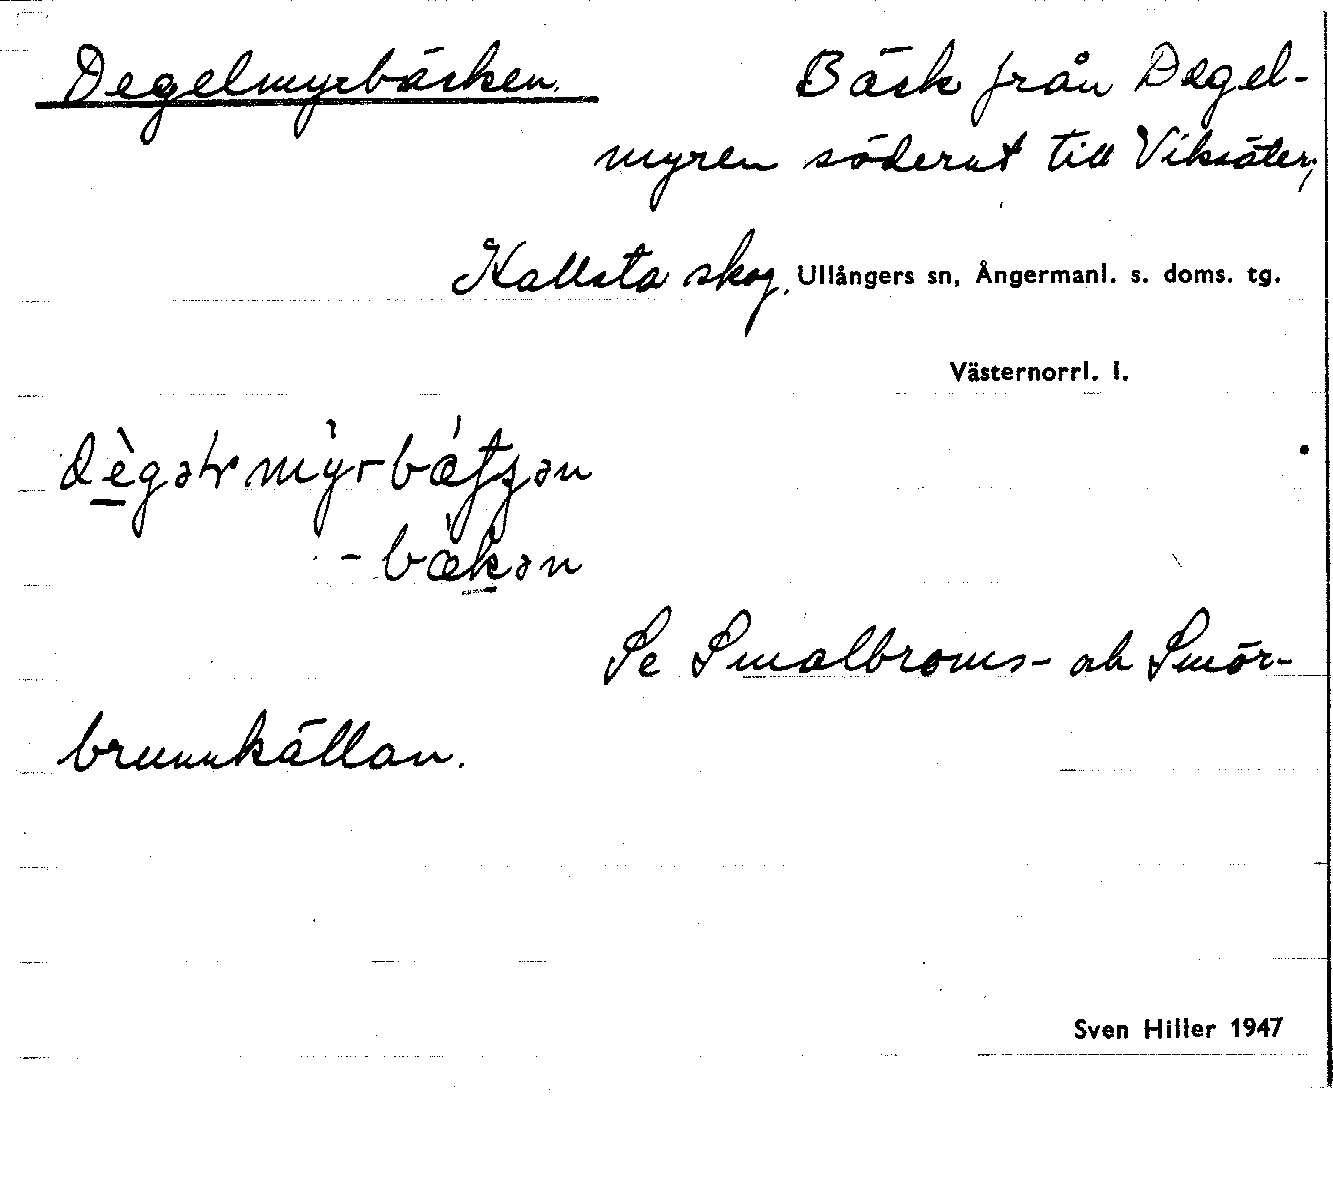 Degelmyrbäcken. Bäck från Degel-
myren söderut till Viksäter,
Kallsta skog, Ullångers sn, Ångermanl. s. doms. tg.
Västernorrl. l.
-bækən
Se Smalbroms- och Smör-
brunnkällan.
Sven Hiller 1947